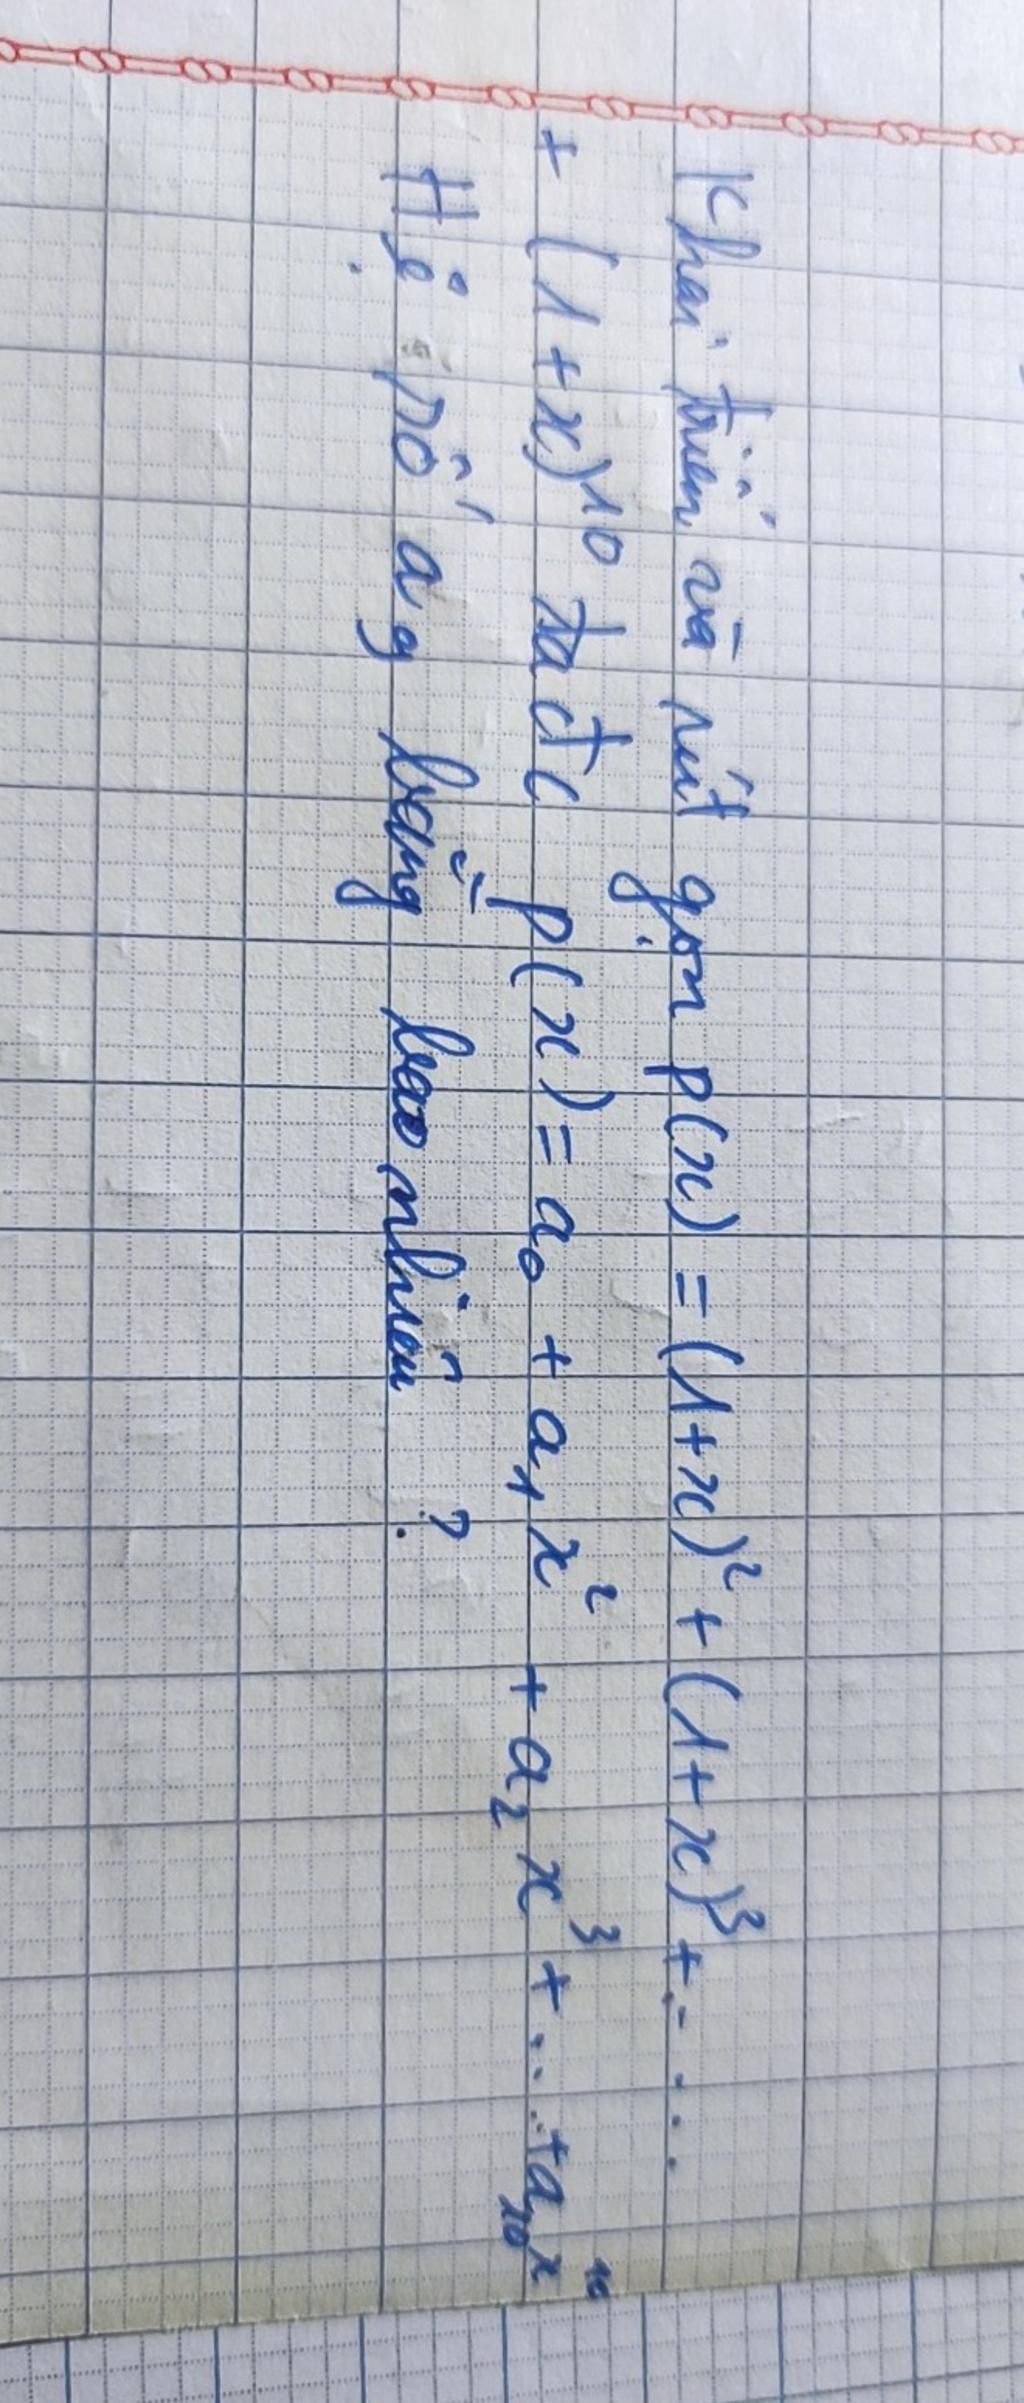 Khai triển và rút gọn p(x) = (1+x)² + (1+x)³ + ....
+ (1+x)¹⁰ ta đc p(x) = a₀ + a₁x² + a₂x³ + ... + a₁₀x¹⁰
Hệ số a₉ bằng bao nhiêu ?